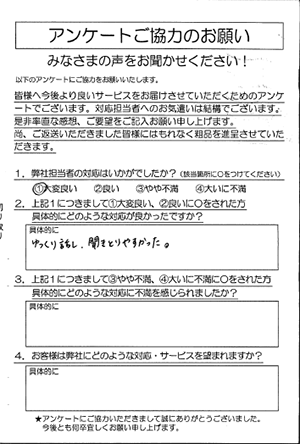 アンケートご協力のお願い
みなさまの声をお聞かせください！
以下のアンケートにご協力をお願いいたします。
皆様へ今後より良いサービスをお届けさせていただくためのアンケ
ートでございます。対応担当者へのお気遣いは結構でございます。
是非率直な感想、ご要望をご記入お願い申し上げます。
尚、ご返送いただきました皆様にはもれなく粗品を進呈させていた
だきます。
1．弊社担当者の対応はいかがでしたか？（該当箇所に○をつけてください）
①大変良い　②良い　③やや不満　④大いに不満
2．上記1につきまして①大変良い、②良いに○をされた方
具体的にどのような対応が良かったですか？
具体的に
ゆっくり話し、聞きとりやすかった。
3．上記1につきまして③やや不満、④大いに不満に○をされた方
具体的にどのような対応に不満を感じられましたか？
具体的に
4．お客様は弊社にどのような対応・サービスを望まれますか？
具体的に
★アンケートにご協力いただきまして誠にありがとうございました。
今後とも何卒宜しくお願い申し上げます。